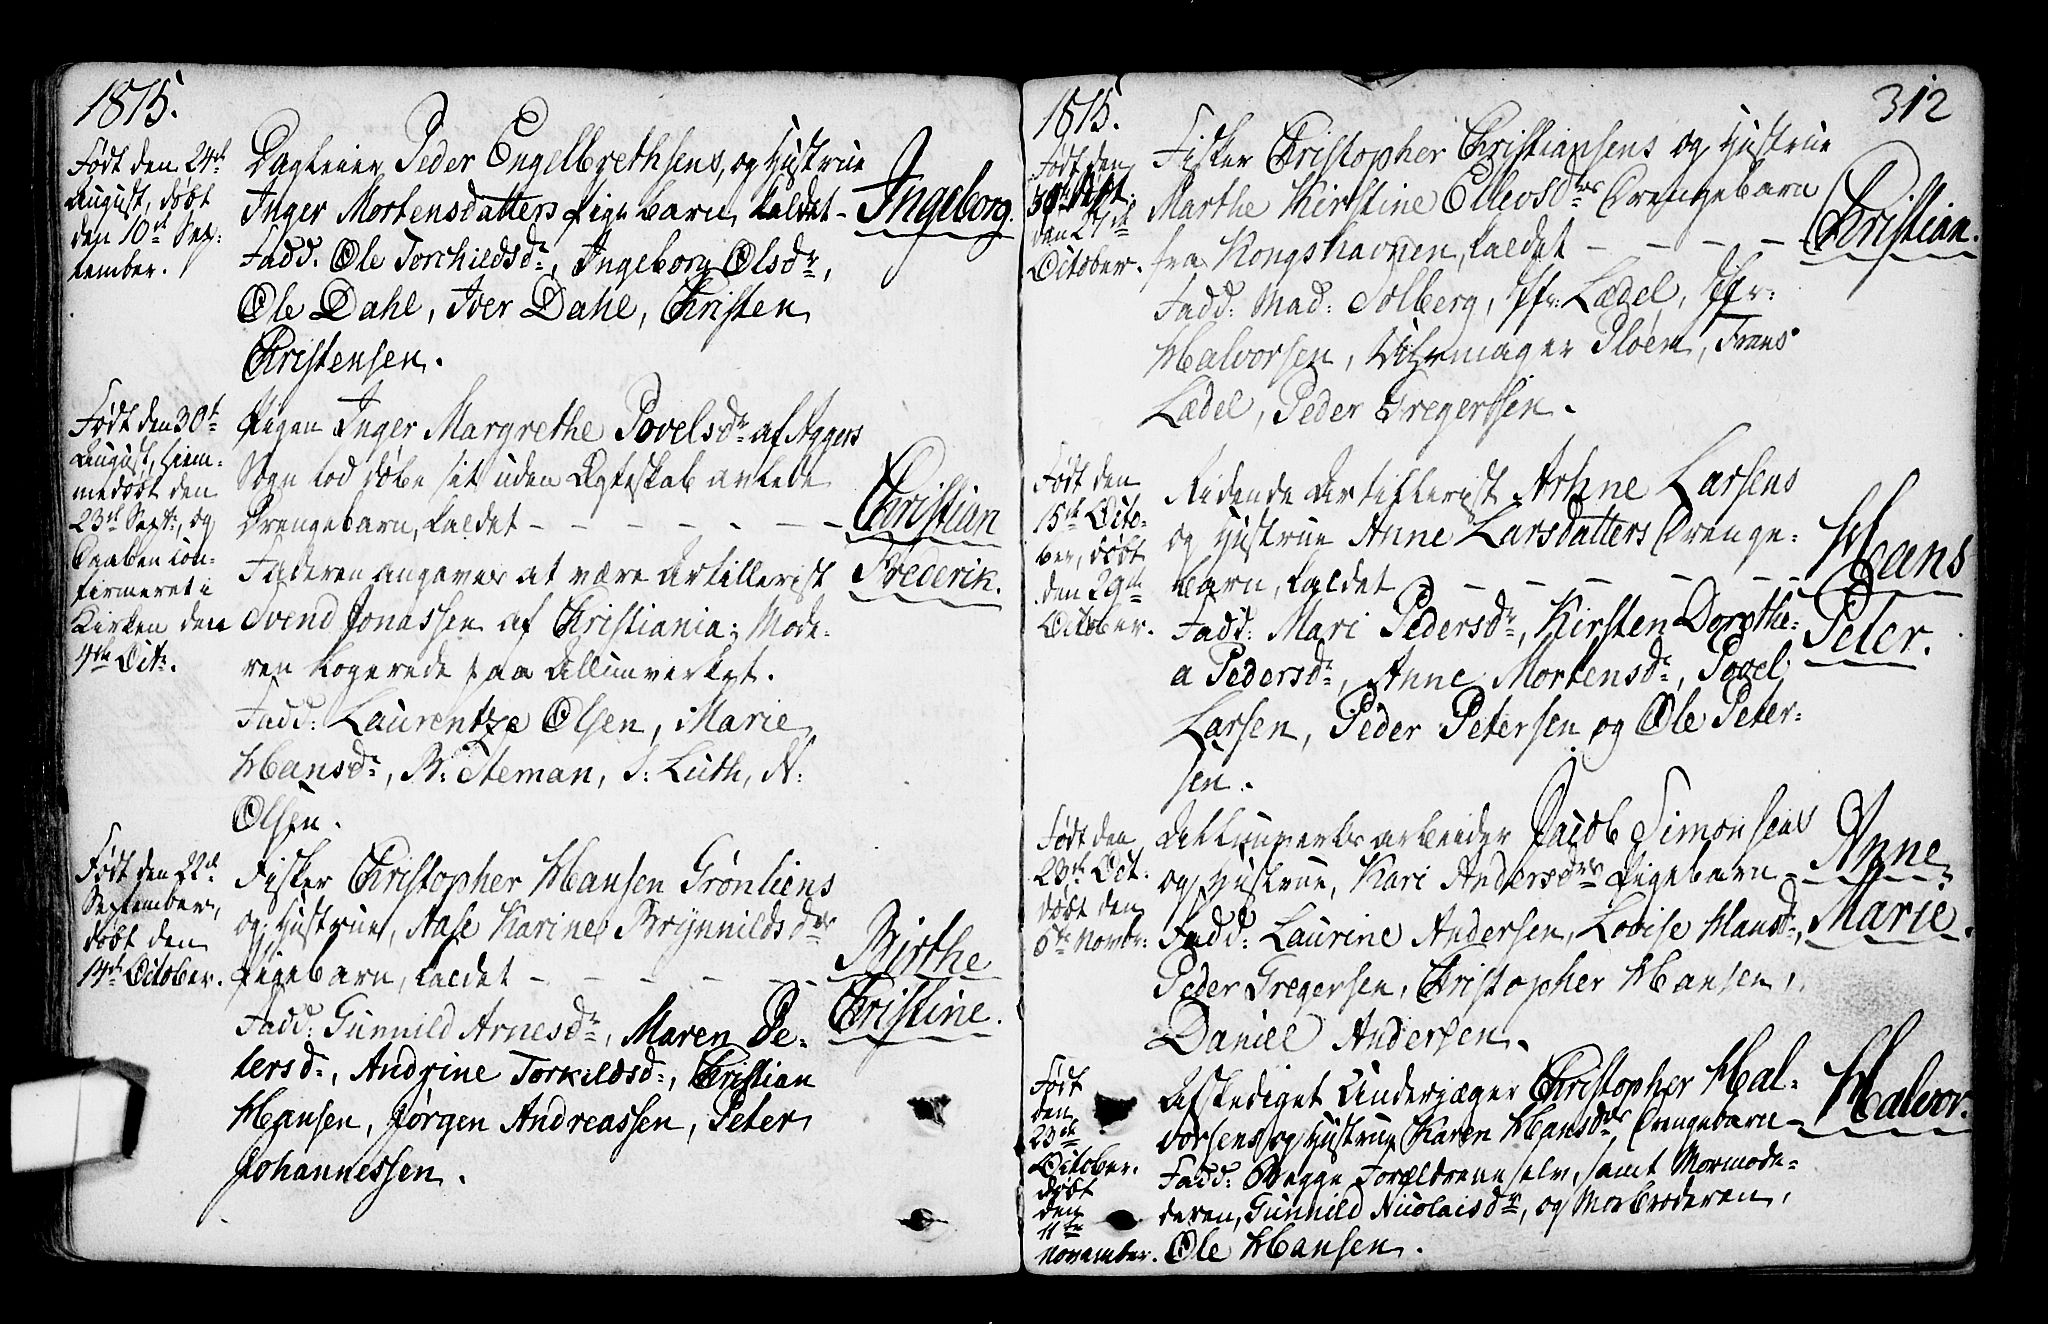 1815.
Født den 24de
August, døbt
den 10de Sep-
tember.
Dagleier Peder Engelbrethsens, og Hustrue
Inger Mortensdatters Pigebarn, kaldet –
Ingeborg.
Fadd. Ole Torchildsdr, Ingeborg Olsdr,
Ole Dahl, Iver Dahl, Christen
Christensen.
Født den 30te
August, hiem-
medøbt den
23de Septr, og
Daaben con-
firmeret i
Kirken den
4de Octr.
Pigen Inger Margrethe Povelsdr af Aggers
Sogn lod døbe sit uden Ægteskab avlede
Drengebarn, kaldet – – – – – – –
Christian
Frederik.
Faderen angaves at være Artillerist
Svend Jonassen af Christiania; Mode-
ren logerede paa Allunverket.
Fadd: Laurentze Olsen, Marie
Hansdr, B: Steman, S: Luth, N:
Olsen.
Født den 22de
September,
døbt den
14de October.
Fisker Christopher Hansen Grønliens
og Hustrue, Aase Karine Brynnildsdrs
Pigebarn, kaldet – – – – – –
Birthe
Christine.
Fadd: Gunnild Arnesdr, Maren Pe-
tersdr, Andrine Torkildsdr, Christian
Hansen, Jørgen Andreassen, Peter
Johannessen.
312
1815.
Født den
døbt
den 27de
October.
Fisker Christopher Christiansens og Hustrue
Marthe Kirstine Ellevsdrs Drengebarn
fra Kongshavnen, kaldet – – – –
Christian.
Fadd: Mad: Solberg, Jfr: Lædel, Jfr:
Halvorsen, Uhrmager Pløen, Frans
Lædel, Peder Gregerssen.
Født den
15de Octo-
ber, døbt
den 29de
October.
Ridende Artillerist Arhne Larsens
og Hustrue Anne Larsdatters Drenge-
barn, kaldet – – – – – –
Hans
Peter.
Fadd: Mari Pedersdr, Kirsten Dorothe-
a Pedersdr, Anne Mortensdr, Povel
Larsen, Peder Petersen og Ole Peter-
sen.
Født den
23de Oct.
døbt den
5te Novbr:
Allunverks arbeider Jacob Simonsens
og Hustrue, Kari Andersdrs Pigebarn –
Anne
Marie.
Fadd: Laurine Andersen, Lovise Hansdr,
Peder Gregersen, Christopher Hansen,
Daniel Andersen.
Født
den
23de
October.
døbt
den
11te
November.
Afskediget Underjæger Christopher Hal-
vorsens og Hustrue Karen Hansdrs, Drengebarn –
Halvor.
Fadd: Begge Forældrene selv, samt Mormode-
deren, Gunnild Nicolaisdr, og Morbroderen,
Ole Hansen.